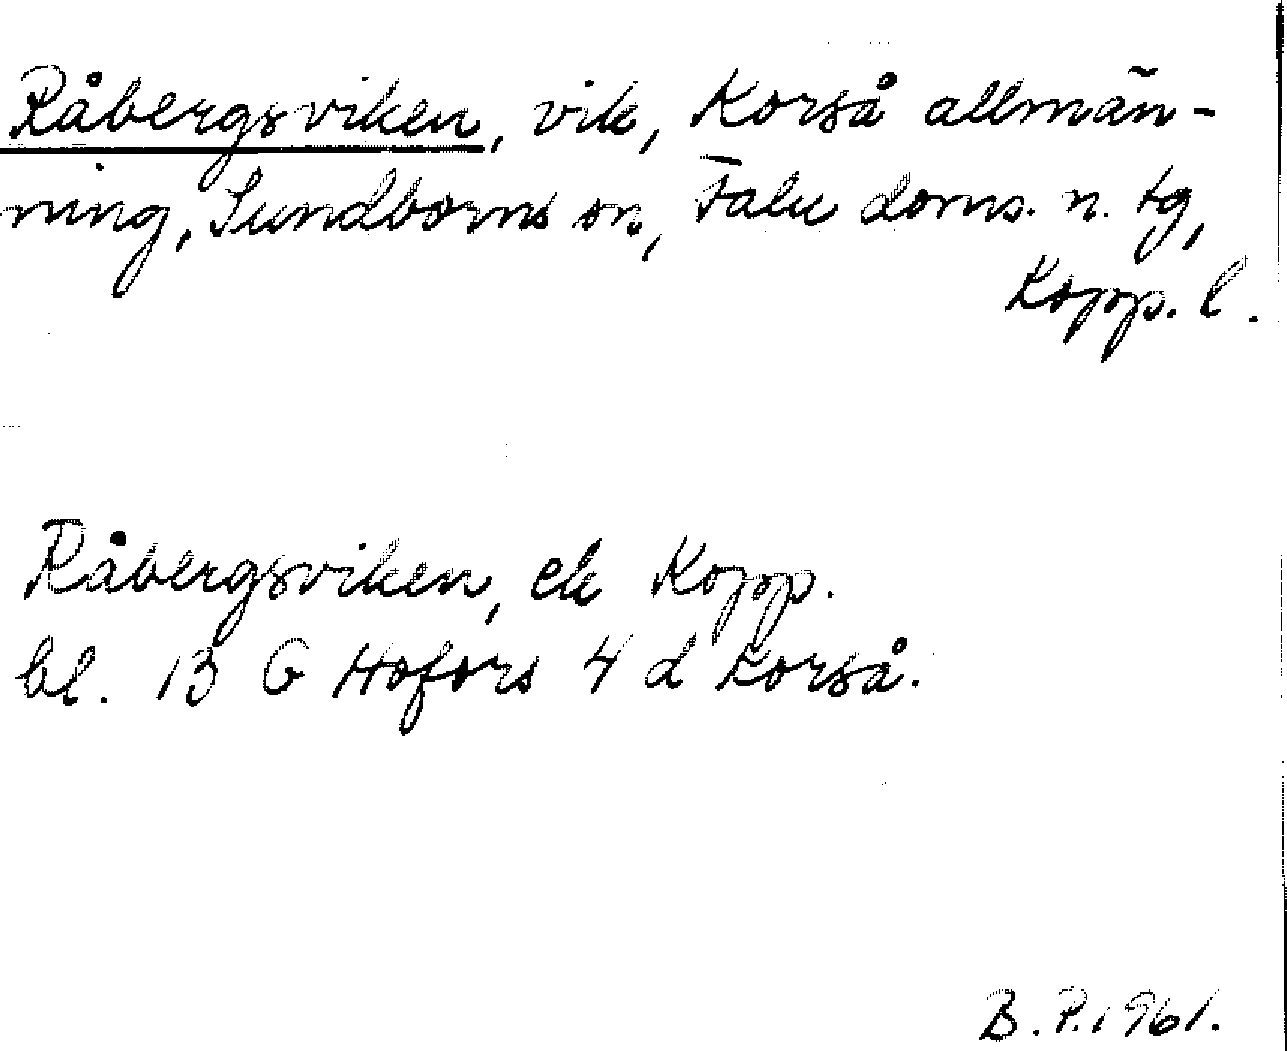 Råbergsviken, vik, Korså allmän-
ning, Sundborns sn, Falu doms. n. tg,
Kopp. l.
Råbergsviken, ek Kopp.
bl. 13 G Hofors 4 d Korså.
B. P. 1961.